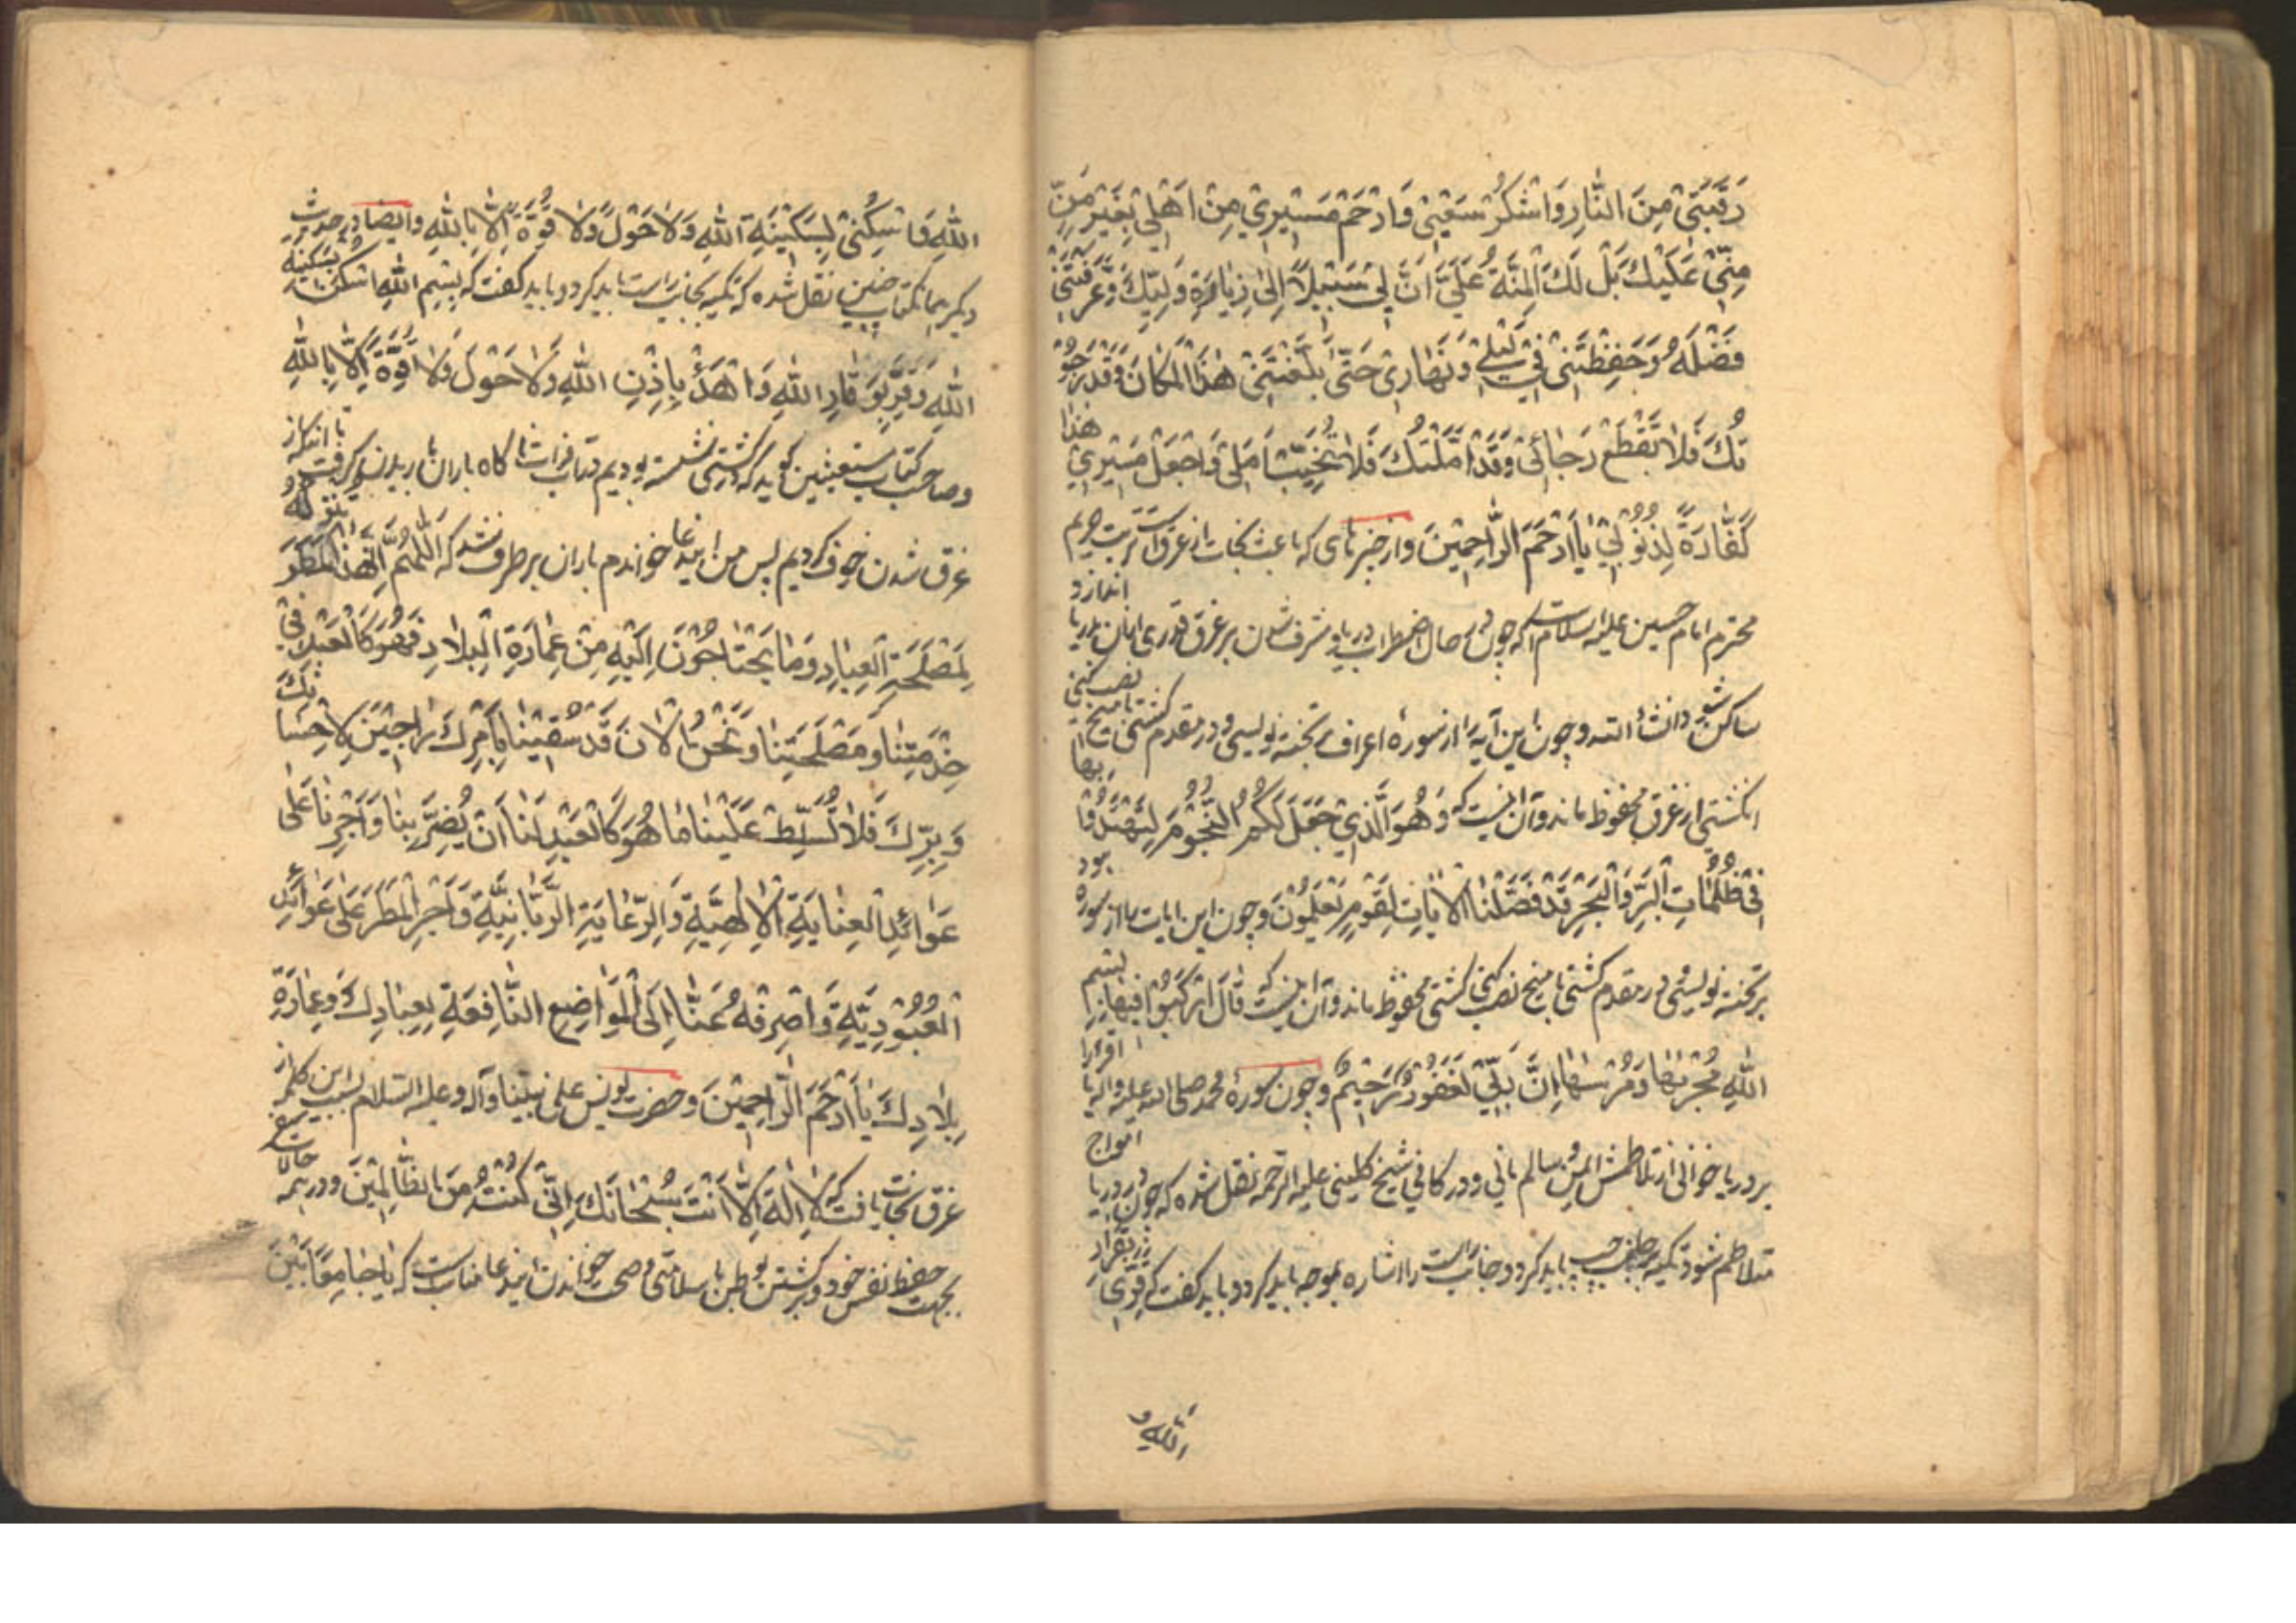 رَقَبَتِيْ مِنَ النَّارِ وَاشْكُرْ سَعْيِيْ وَارْحَمْ مَسِيْرِيْ مِنْ اَهْلِيْ بِغَيْرِ مَنٍّ
مِنِّيْ عَلَيْكَ بَلْ لَكَ الْمِنَّةُ عَلَيَّ اَنَّ لِيْ سَبِيْلاً اِلىٰ زِيَارَةِ وَلِيِّكَ وَعَرَّفْتَنِيْ
فَضْلَهُ وَحَفِظْتَنِيْ فِيْ لَيْلِيْ وَنَهَارِيْ حَتّٰى بَلَّغْتَنِيْ هٰذَا الْمَكَانَ وَقَدْ رَجَوْ
تُكَ فَلاٰ تَقْطَعْ رَجَائِيْ وَقَدْ اَمَّلْتُكَ فَلاٰ تُخَيِّبْ اَمَلِيْ وَاجْعَلْ مَسِيْرِيْ هٰذا
كَفَّارَةً لِذُنُوْبِيْ يٰا اَرْحَمَ الرَّاحِمِيْنَ واز چیزهای که باعث نجات از غرق است تربت حریم
محترم امام حسین علیه السلام است که چون در حال اضطراب دریا و مشرف شدن بر غرق قدری از ان بدریا اندازد
ساکن شود انشاء الله و چون این آیه را از سوره اعراف بر تخته نویسی و در مقدم کشتی با میخ نصب کنی
ان کشتی از غرق محفوظ ماند و آن اینست که وَهُوَ الَّذِيْ جَعَلَ لَكُمُ النُّجُوْمَ لِتَهْتَدُوْا بِهَا
فِيْ ظُلُمَاتِ الْبَرِّ وَالْبَحْرِ قَدْ فَصَّلْنَا الْاٰيَاتِ لِقَوْمٍ يَعْلَمُوْنَ و چون این ایات را از سوره هود
بر تخته نویسی و در مقدم کشتی با میخ نصب کنی کشتی محفوظ ماند و آن اینست که قَالَ ارْكَبُوْا فِيْهَا بِسْمِ
اللهِ مَجْرٖىهَا وَمُرْسٰهَا اِنَّ رَبِّيْ لَغَفُوْرٌ رَحِيْمٌ و چون سورهٔ محمد صلى الله عليه واله را
بر دریا خوانی از تلاطمش ایمن و سالم مانی و در کافی شیخ کلینی علیه الرحمه نقل شده که چون در دریا امواج
متلاطم شود تکیه بر جانب چپ باید کرد و جانب راست را اشاره بموجه باید کرد و باید گفت که قِرِّيْ بِقَرَارِ
اللهِ و
اللهِ وَاسْكُنِيْ بِسَكِيْنَةِ اللهِ وَلاٰ حَوْلَ وَلاٰ قُوَّةَ اِلاّٰ بِاللهِ وایضا در حدیث
دیگر بهمان کتاب چنین نقل شده که تکیه بجانب راست باید کرد و باید گفت که بِسْمِ اللهِ اسْكُنْ بِسَكِيْنَةِ
اللهِ وَقِرَّ بِوَقَارِ اللهِ وَاهْدَأْ بِاِذْنِ اللهِ وَلاٰ حَوْلَ وَلاٰ قُوَّةَ اِلاّٰ بِاللهِ
و صاحب کتاب مستغیثین گوید که در کشتی نشسته بودیم در آب فرات ناگاه باران باریدن گرفت تا انکه از
غرق شدن خوف کردیم پس من این دعا خواندم باران برطرف شد که اَللّٰهُمَّ اِنَّ هٰذَا الْمَطَرَ
لِمَصْلَحَةِ الْعِبَادِ وَمَا يَحْتَاجُوْنَ اِلَيْهِ مِنْ عِمَارَةِ الْبِلاٰدِ فَهُوَ كَالْعَبْدِ فِيْ
خِدْمَتِنَا وَمَصْلَحَتِنَا وَنَحْنُ الْاٰنَ قَدْ سُقِيْنَا بِاَمْرِكَ رَاجِيْنَ لِاِحْسَانِكَ
وَبِرِّكَ فَلاٰ تُسَلِّطْ عَلَيْنَا مَا هُوَ كَالْعَبْدِ لَنَا اَنْ يُضِرَّ بِنَا وَاَجْرِنَا عَلىٰ
عَوَائِدِ الْعِنَايَةِ الْاِلٰهِيَّةِ وَالرِّعَايَةِ الرَّبَّانِيَّةِ وَاَجْرِ الْمَطَرَ عَلىٰ عَوَائِدِ
الْعُبُوْدِيَّةِ وَاصْرِفْهُ عَنَّا اِلَى الْمَوَاضِعِ النَّافِعَةِ لِعِبَادِكَ وَعِمَارَةِ
بِلاٰدِكَ يٰا اَرْحَمَ الرَّاحِمِيْنَ و حضرت یونس على نبینا وآله وعلیه السلام بسبب این کلمه از
غرق نجات یافت که لاٰ اِلٰهَ اِلاّٰ اَنْتَ سُبْحَانَكَ اِنِّيْ كُنْتُ مِنَ الظَّالِمِيْنَ و در همه حالات
بجهت حفظ نفس خود و برگشتن بوطن با سلامتی و صحت خواندن این دعا مناسب است که يٰا جَامِعًا بَيْنَ